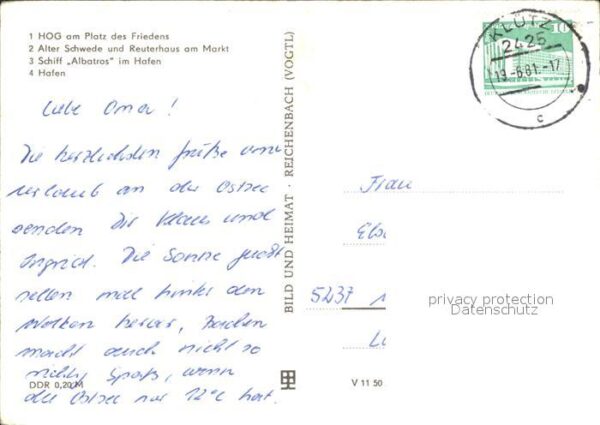 1 HOG am Platz des Friedens
2 Alter Schwede und Reuterhaus am Markt
3 Schiff „Albatros" im Hafen
4 Hafen
Liebe Oma!
Die herzlichsten Grüße vom
Urlaub an der Ostsee
senden Dir Klaus und
Ingrid. Die Sonne guckt
selten mal hinter den
Wolken hervor, Baden
macht auch nicht so
richtig Spaß, wenn
die Ostsee nur 12°C hat.
DDR 0,20 M
BILD UND HEIMAT · REICHENBACH (VOGTL)
V 11 50
KLÜTZ
2425
19.-6.81.-17
c
10
Frau
5237
privacy protection
Datenschutz